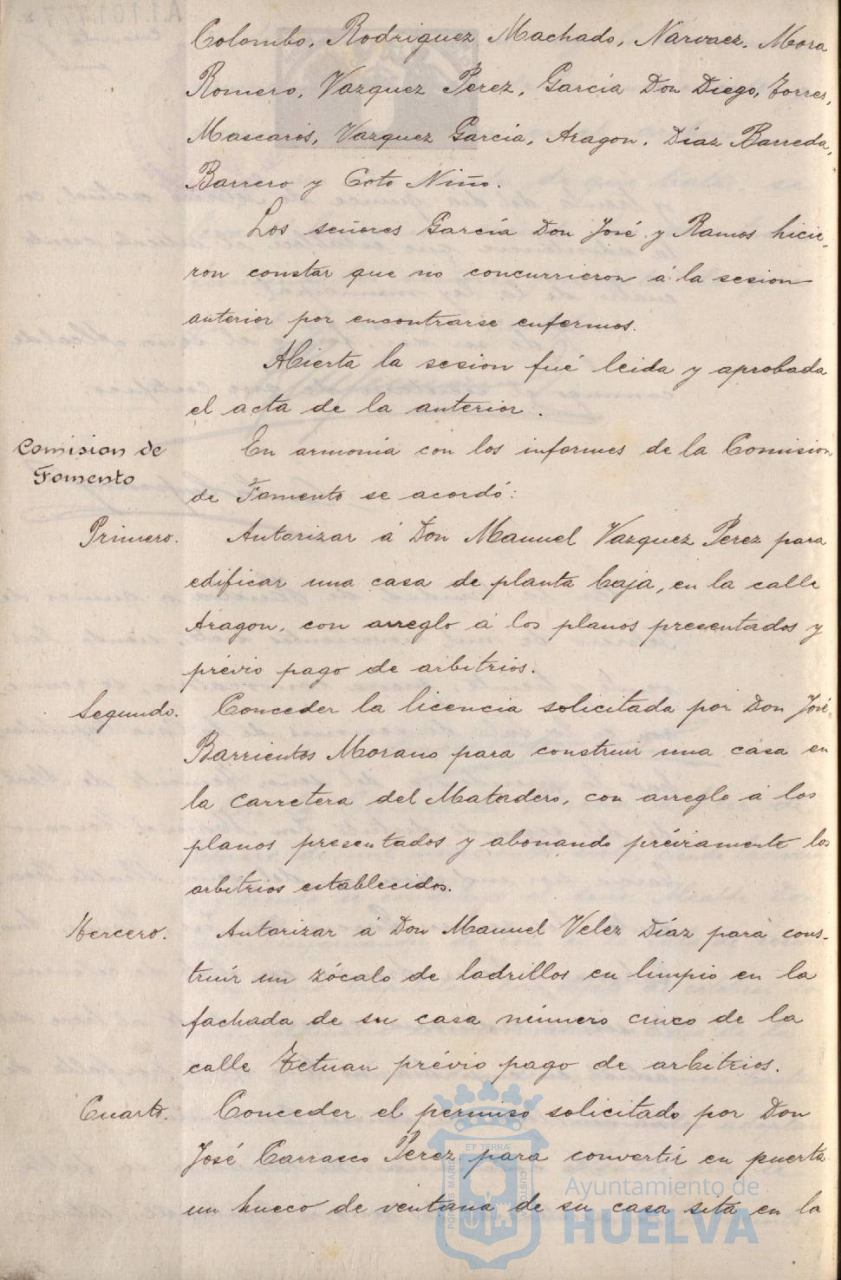 Colombo, Rodriguez Machado, Narvaez, Mora
Romero, Vazquez Perez, García Don Diego, Torres,
Mascarós, Vazquez García, Aragon, Díaz Barreda,
Barrero y Coto Niño.
Los señores García Don José y Ramos hicie-
ron constar que no concurrieron á la sesion
anterior por encontrarse enfermos.
Abierta la sesion fué leida y aprobada
el acta de la anterior.
Comision de
Fomento
En armonía con los informes de la Comision
de Fomento se acordó:
Primero. Autorizar á Don Manuel Vazquez Perez para
edificar una casa de planta baja, en la calle
Aragon, con arreglo á los planos presentados y
prévio pago de arbitrios.
Segundo. Conceder la licencia solicitada por Don José
Barrientos Morano para construir una casa en
la Carretera del Matadero, con arreglo á los
planos presentados y abonando préviamente los
arbitrios establecidos.
Tercero. Autorizar á Don Manuel Velez Díaz para cons-
truír un zócalo de ladrillos en limpio en la
fachada de su casa número cinco de la
calle Tetuan prévio pago de arbitrios.
Cuarto. Conceder el permiso solicitado por Don
José Carrasco Perez para convertir en puerta
un hueco de ventana de su casa sita en la
Ayuntamiento de
HUELVA